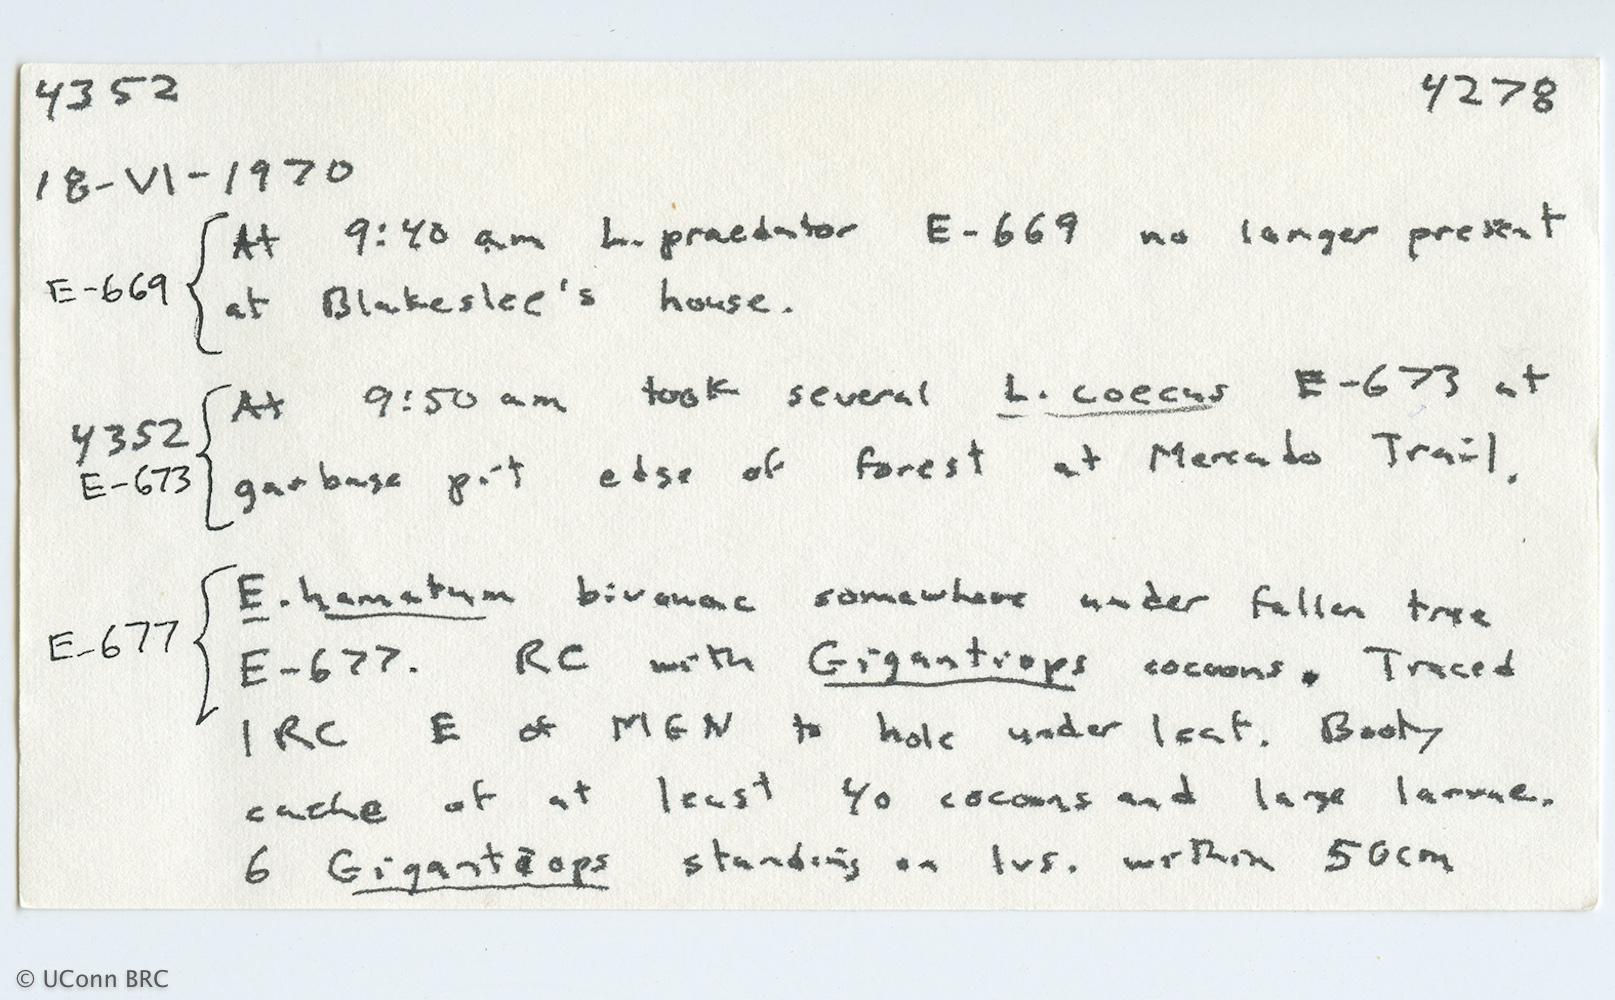 4352 4278
18-VI-1970
At 9:40 am L. praedator E-669 no longer present
E-669 at Blakeslee's house.
At 9:50 am took several L. coecus E-673 at
4352
E-673 garbage pit edge of forest at Mercado Trail.
E. hamatum bivouac somewhere under fallen tree
E-677 E-677. RC with Gigantiops cocoons. Traced
1 RC E of MGN to hole under leaf. Booty
cache of at least 40 cocoons and large larvae.
6 Gigantiops standing on lvs. within 50cm
© UConn BRC